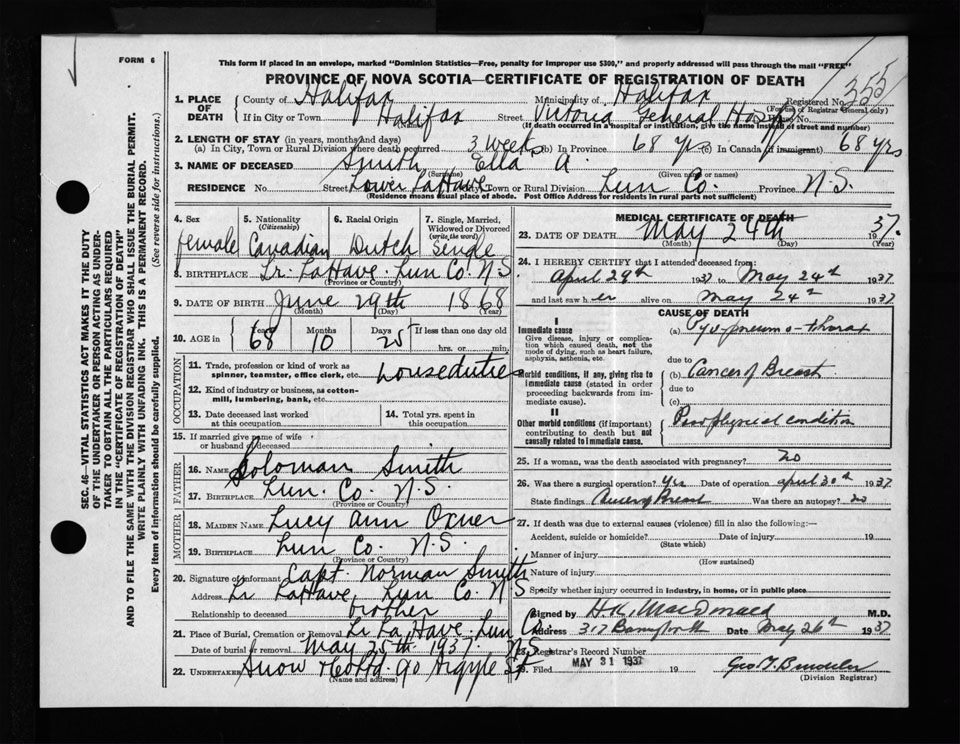 FORM 6
This form if placed in an envelope, marked "Dominion Statistics—Free, penalty for improper use $300," and properly addressed will pass through the mail "FREE"
PROVINCE OF NOVA SCOTIA—CERTIFICATE OF REGISTRATION OF DEATH
SEC. 46—VITAL STATISTICS ACT MAKES IT THE DUTY
OF THE UNDERTAKER OR PERSON ACTING AS UNDER-
TAKER TO OBTAIN ALL THE PARTICULARS REQUIRED
IN THE "CERTIFICATE OF DEATH"
AND TO FILE THE SAME WITH THE DIVISION REGISTRAR WHO SHALL ISSUE THE BURIAL PERMIT.
WRITE PLAINLY WITH UNFADING INK. THIS IS A PERMANENT RECORD.
Every item of information should be carefully supplied. (See reverse side for instructions.)
1. PLACE OF DEATH County of Halifax Municipality of Halifax Registered No. 355
(For use of Registrar General only)
If in City or Town Halifax Street Victoria General Hosp No.
(Name) (If death occurred in a hospital or institution, give the name instead of street and number)
2. LENGTH OF STAY (in years, months and days)
(a) In City, Town or Rural Division where death occurred 3 Weeks (b) In Province 68 yrs (c) In Canada (if immigrant) 68 yrs
3. NAME OF DECEASED Smith Ella A.
(Surname) (Given name or names)
RESIDENCE No. Street Lower LaHave City, Town or Rural Division Lun Co. Province N.S.
(Residence means usual place of abode. Post Office Address for residents in rural parts not sufficient)
4. Sex female
5. Nationality (Citizenship) Canadian
6. Racial Origin Dutch
7. Single, Married, Widowed or Divorced (write the word)
8. BIRTHPLACE Lr. LaHave. Lun Co. N S
(Province or Country)
9. DATE OF BIRTH June 29th 1868
(Month) (Day) (Year)
10. AGE in Years 68 Months 10 Days 25 If less than one day old hrs. or min.
OCCUPATION
11. Trade, profession or kind of work as spinner, teamster, office clerk, etc. houseduties
12. Kind of industry or business, as cotton-mill, lumbering, bank, etc.
13. Date deceased last worked at this occupation
14. Total yrs. spent in this occupation
15. If married give name of wife or husband of deceased
FATHER
16. NAME Soloman Smith
17. BIRTHPLACE Lun. Co. N.S.
(Province or Country)
MOTHER
18. MAIDEN NAME Lucy Ann Oxner
19. BIRTHPLACE Lun Co. N.S.
(Province or Country)
20. Signature of informant Capt. Norman Smith
Address Lr LaHave, Lun Co. N S
Relationship to deceased brother
21. Place of Burial, Cremation or Removal Lr La Have. Lun Co.
Date of burial or removal May 25th 1937. N.S.
22. UNDERTAKER Snow & Co Ltd 90 Argyle St
(Name and address)
MEDICAL CERTIFICATE OF DEATH
23. DATE OF DEATH May 24th 1937.
(Month) (Day) (Year)
24. I HEREBY CERTIFY that I attended deceased from:
April 29th 1937 to May 24th 1937
and last saw her alive on May 24th 1937
CAUSE OF DEATH
I
Immediate cause
Give disease, injury or complication which caused death, not the mode of dying, such as heart failure, asphyxia, asthenia, etc.
(a) Pyo-pneumo-thorax
due to
Morbid conditions, if any, giving rise to immediate cause (stated in order proceeding backwards from immediate cause).
(b) Cancer of Breast
due to
(c)
II
Other morbid conditions (if important) contributing to death but not causally related to immediate cause.
Poor physical condition
25. If a woman, was the death associated with pregnancy? no
26. Was there a surgical operation? Yes Date of operation April 30th 1937
State findings Cancer of Breast Was there an autopsy? no
27. If death was due to external causes (violence) fill in also the following:—
Accident, suicide or homicide? Date of injury 19
(State which)
Manner of injury
(How sustained)
Nature of injury
Specify whether injury occurred in industry, in home, or in public place
Signed by H.K. MacDonald M.D.
Address 317 Date May 26th 1937
28. Registrar's Record Number
29. Filed MAY 31 1937 19
(Division Registrar)